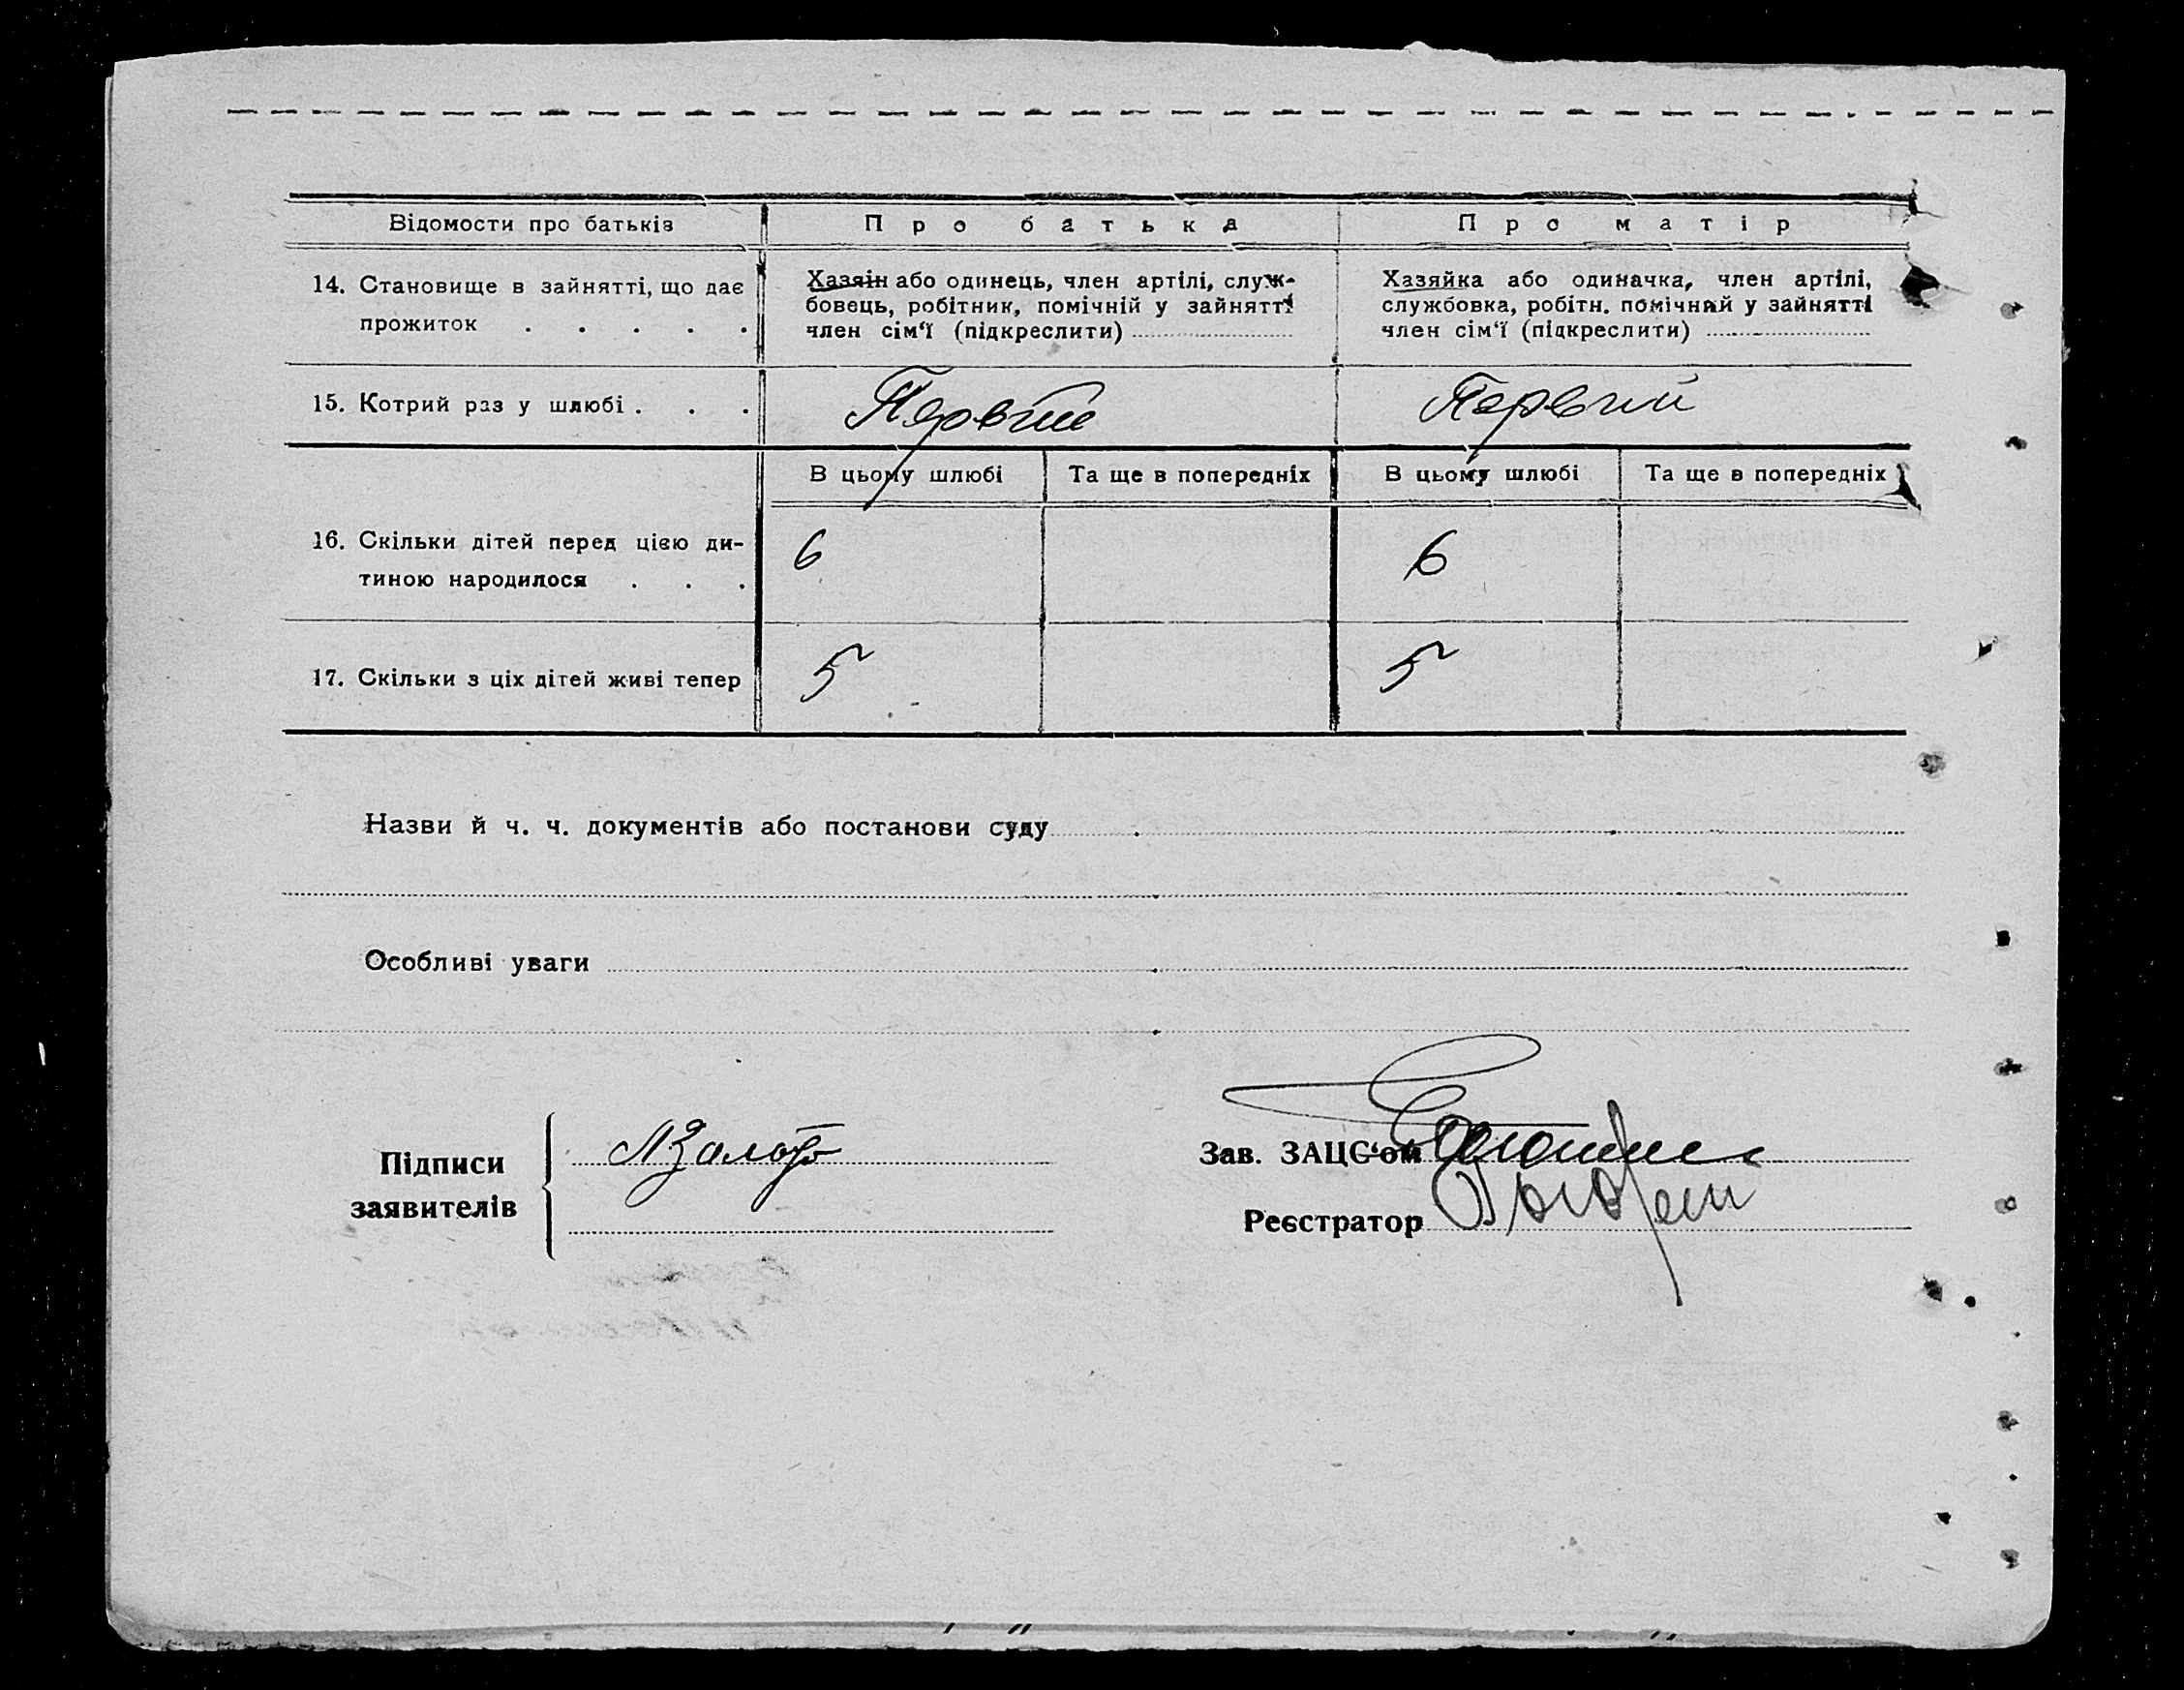 Відомости про батьків
Про батька
Про матір
14. Становище в зайнятті, що дає
прожиток . . . . .
Хазяін або одинець, член артілі, служ-
бовець, робітник, помічній у зайнятті
член сім‘ї (підкреслити)
Хазяйка або одиначка, член артілі,
службовка, робітн. помічний у зайнятті
член сім‘ї (підкреслити)
15. Котрий раз у шлюбі . . .
Первий
Первий
В цьому шлюбі
Та ще в попередніх
В цьому шлюбі
Та ще в попередніх
16. Скільки дітей перед цією ди-
тиною народилося . . .
6
6
17. Скільки з ціх дітей живі тепер
5
5
Назви й ч. ч. документів або постанови суду
Особливі уваги
Підписи
заявителів
Зав. ЗАЦС‘ом
Реєстратор